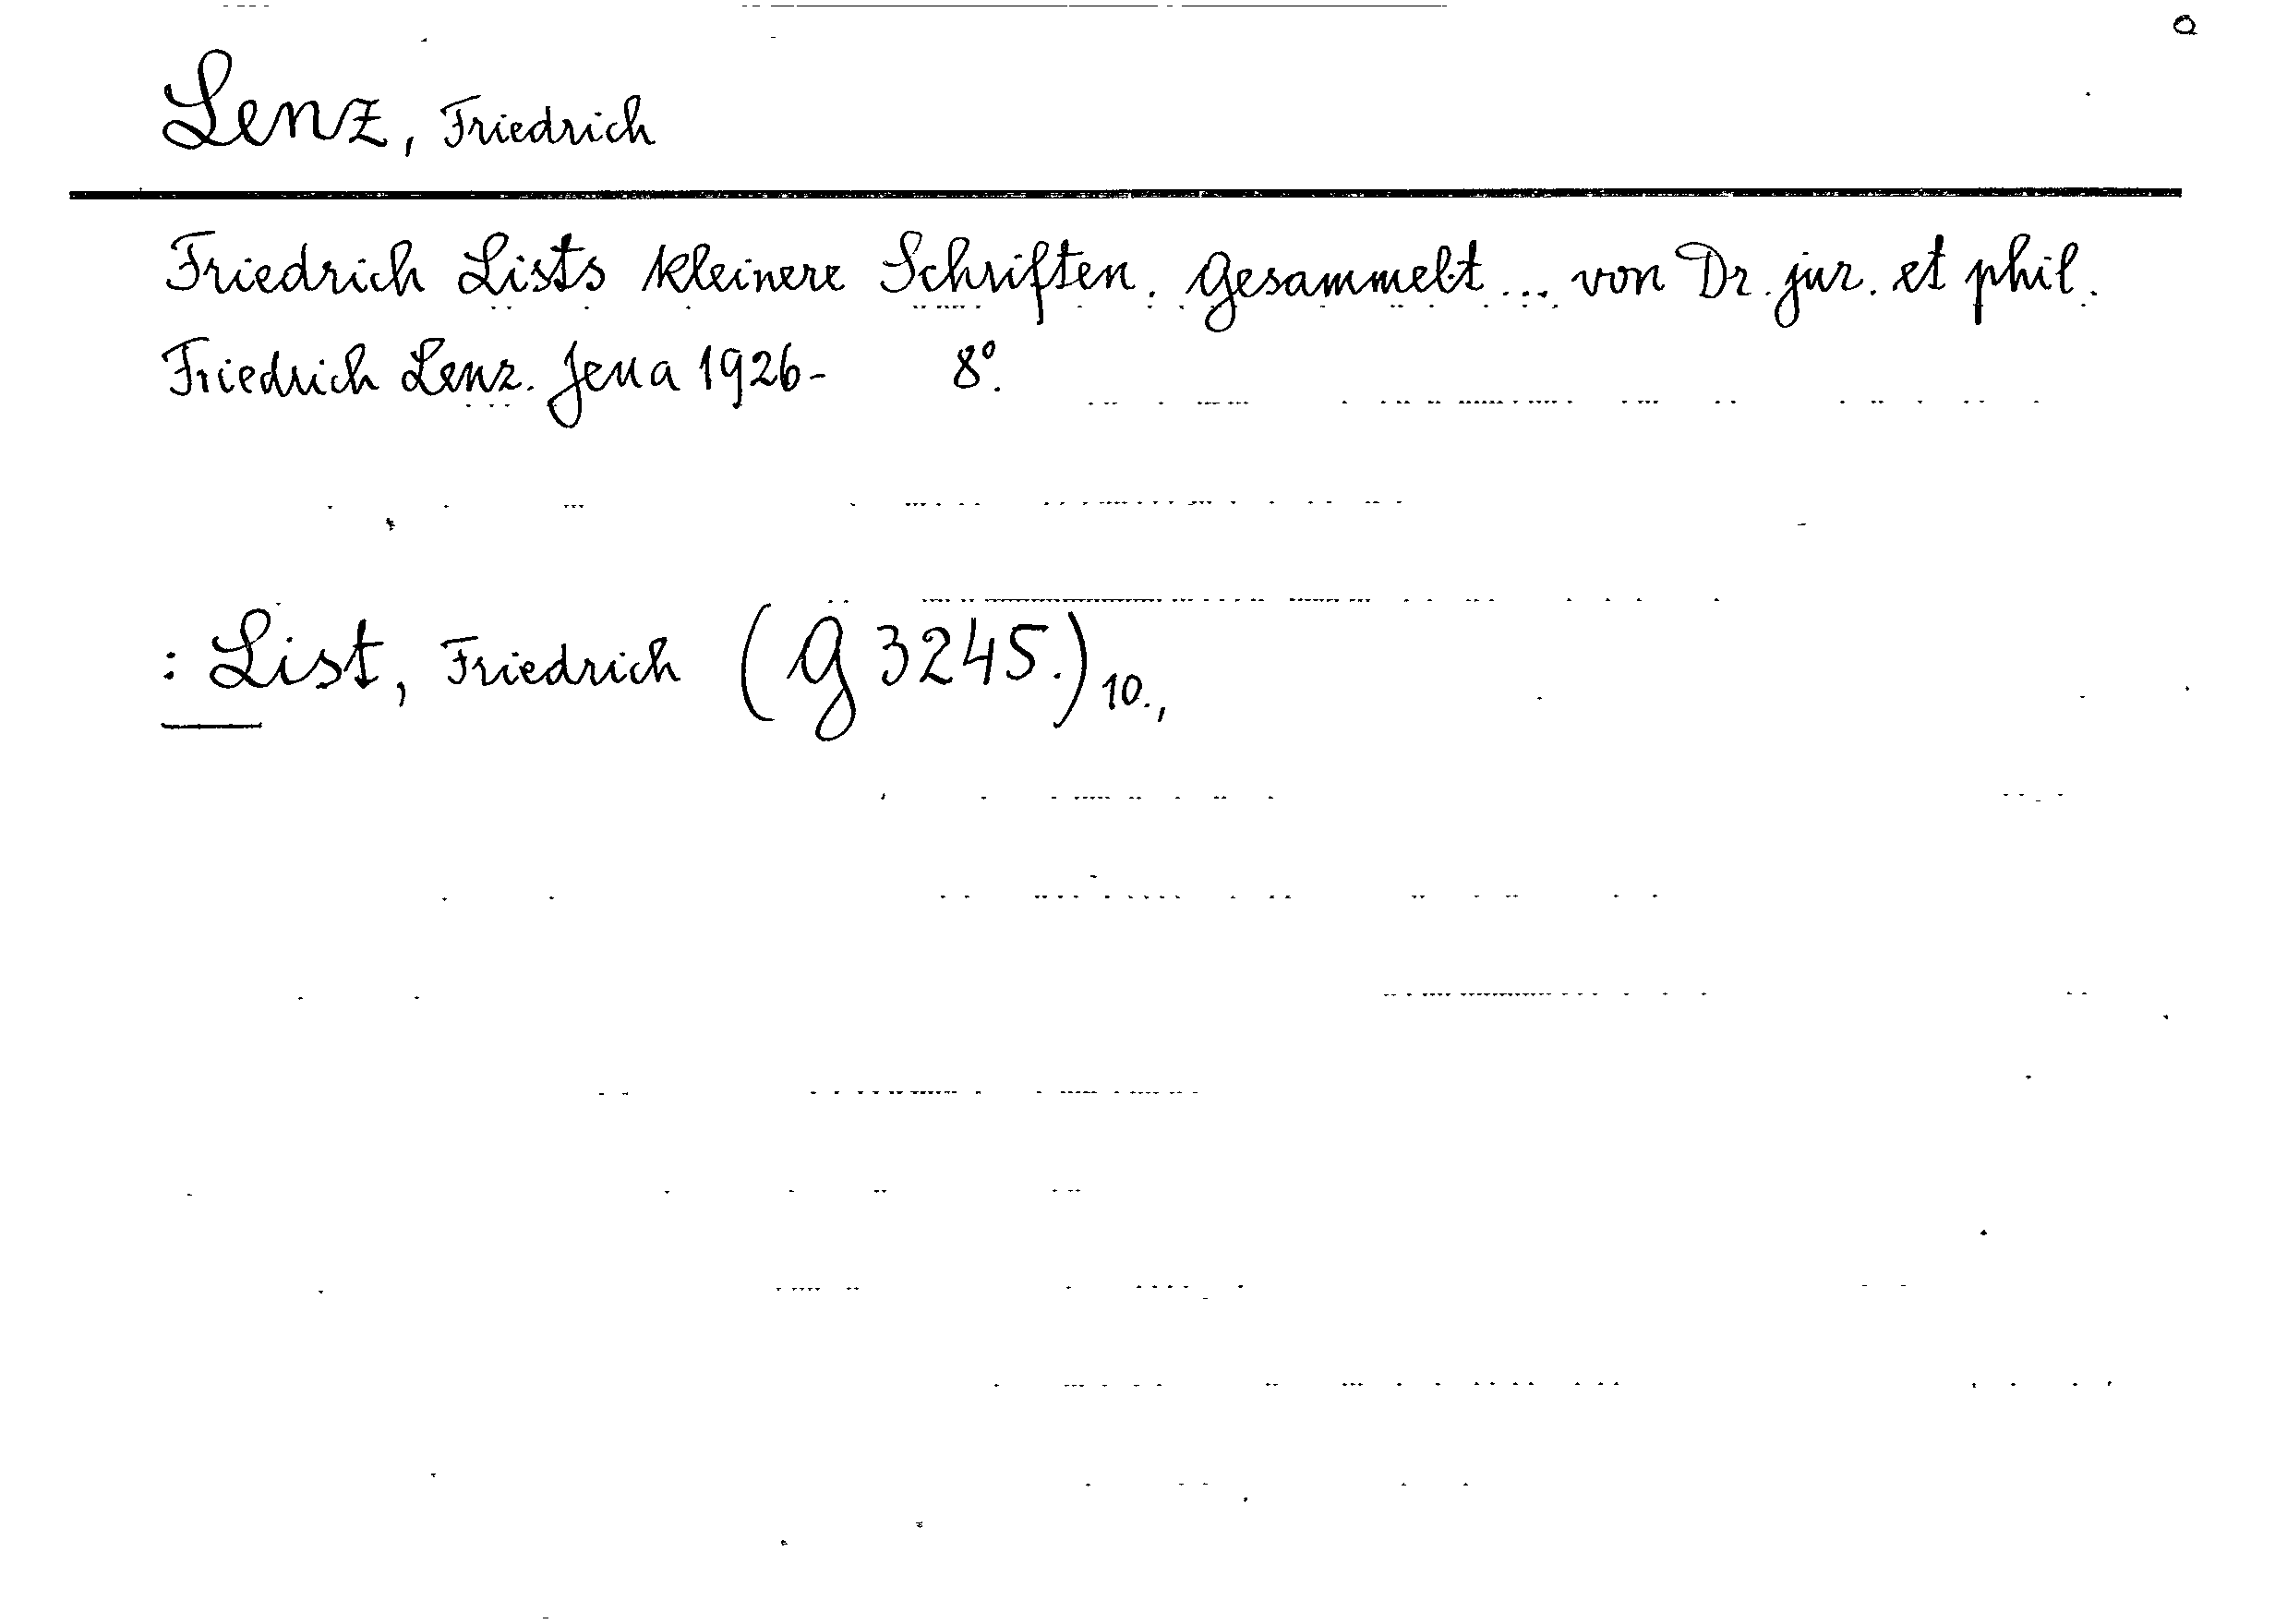 Lenz, Friedrich
Friedrich Lists kleinere Schriften. Gesammelt... von Dr. jur. et phil.
Friedrich Lenz. Jena 1926- 8°.
: List, Friedrich (G 3245.) 10.,